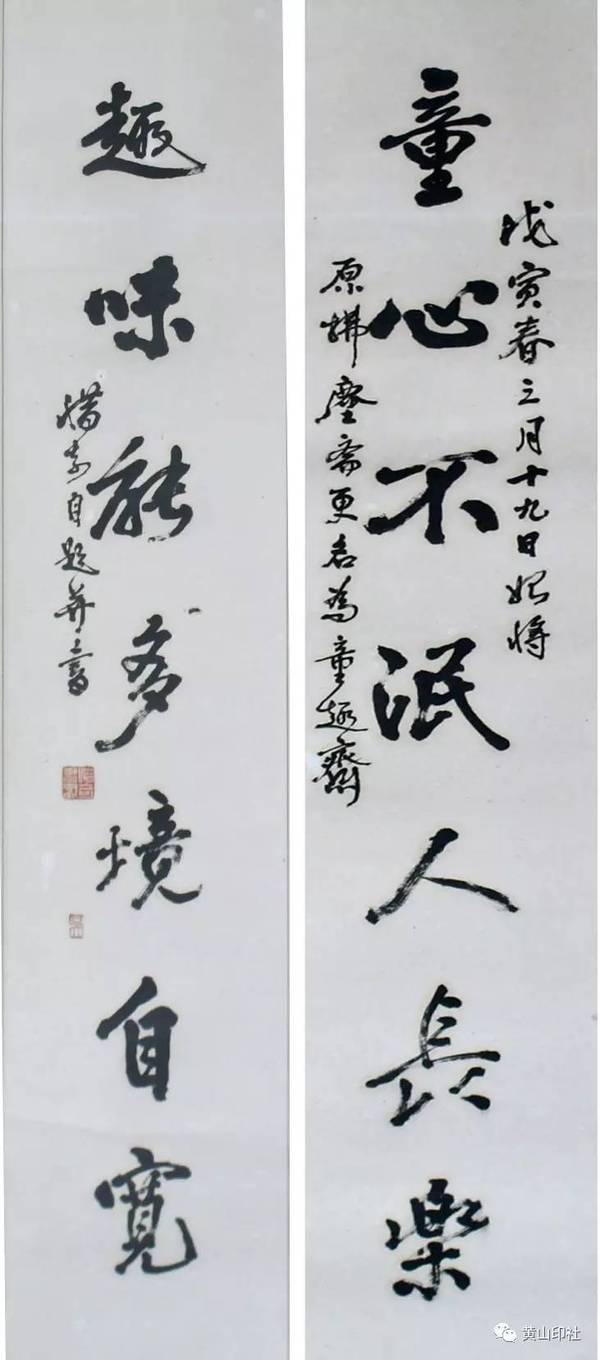 童心不泯人長樂
戊寅春三月十九日始將
原拂塵齋更名為童趣齋
趣味能多境自寬
自題并書
黄山印社